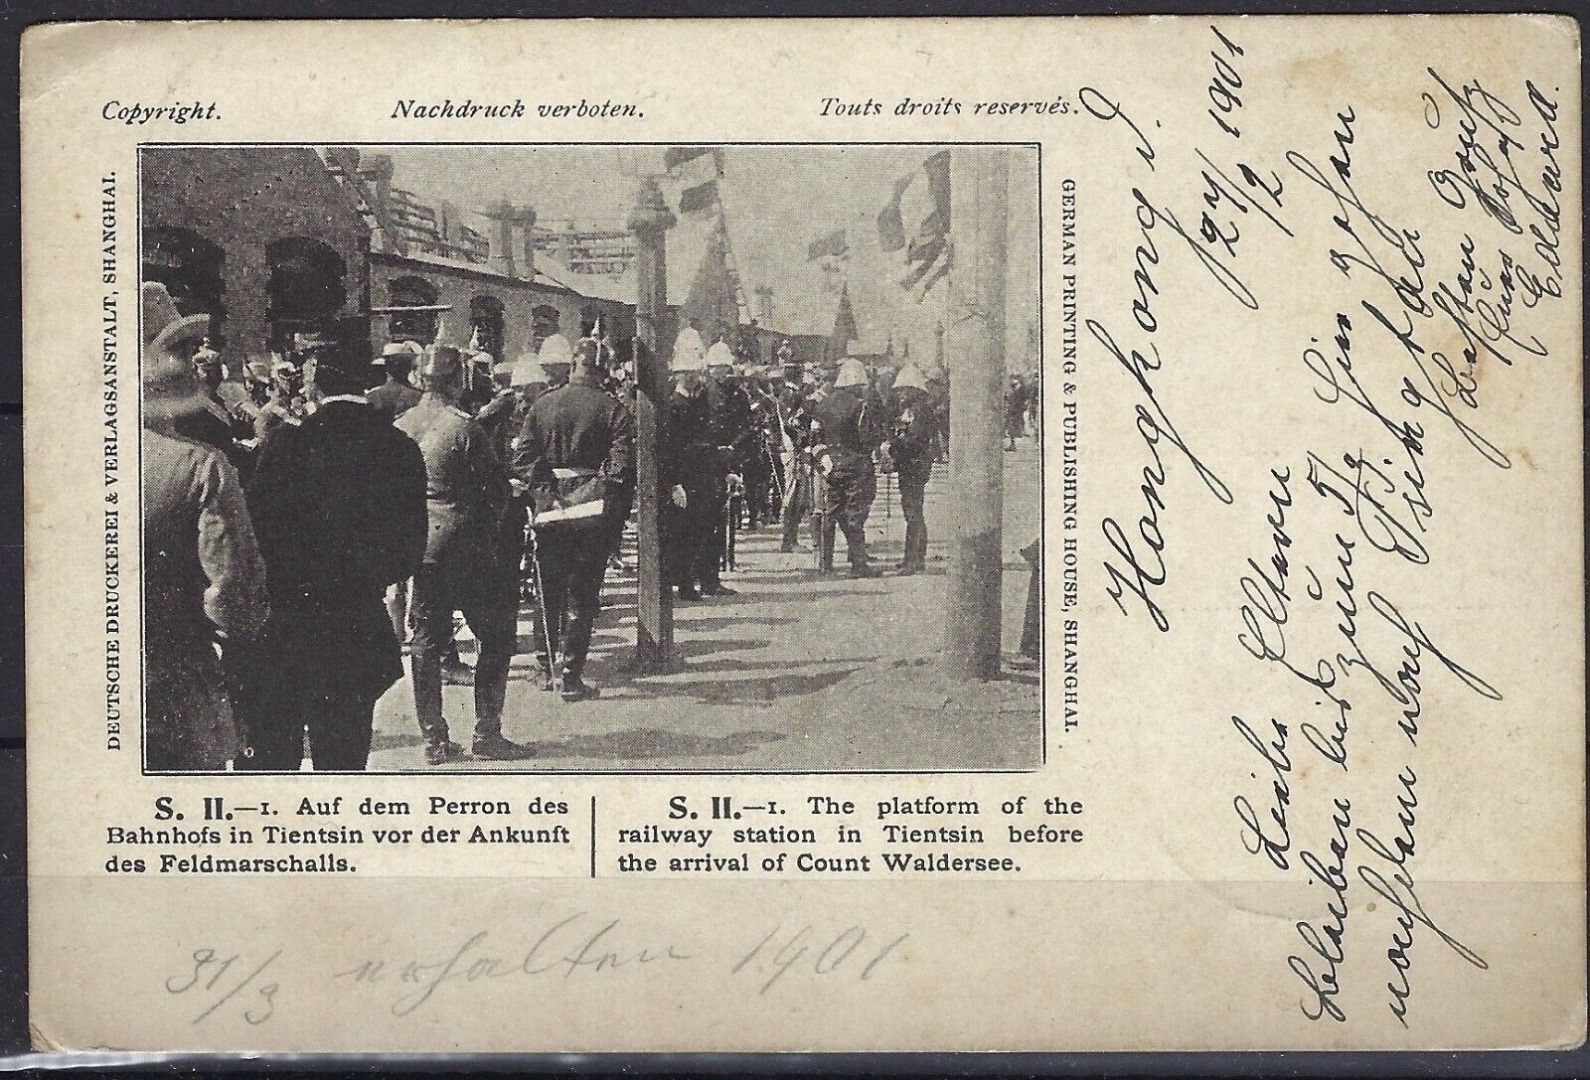 Copyright. Nachdruck verboten. Touts droits reservés.
DEUTSCHE DRUCKEREI & VERLAGSANSTALT, SHANGHAI.
GERMAN PRINTING & PUBLISHING HOUSE, SHANGHAI.
S. II.—1. Auf dem Perron des
Bahnhofs in Tientsin vor der Ankunft
des Feldmarschalls.
S. II.—1. The platform of the
railway station in Tientsin before
the arrival of Count Waldersee.
Hongkong d.
24/2 1901
Liebe Eltern
bleiben bis zum 5/3 hier gehen
nachdem nach Tsingtau
Besten Gruß
Euer Sohn
Eduard.
31/3 erhalten 1901